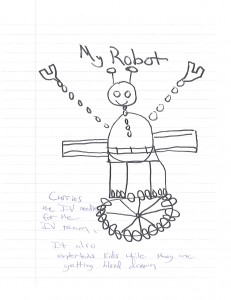 My Robot
Carries
the IV needles
for the
IV team.
It also
entertains kids while they are
getting blood drawn